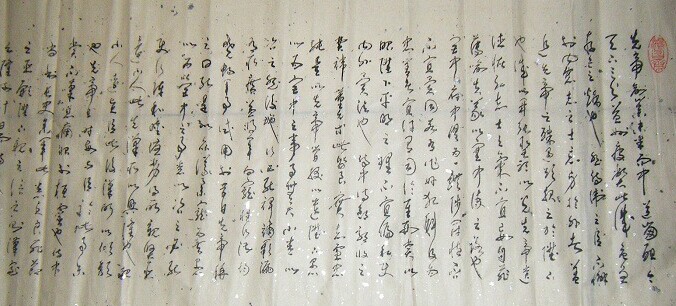 先帝創業未半而中道崩殂今
天下三分益州疲弊此誠危急
存亡之秋也然侍衛之臣不懈
於內忠志之士忘身於外者蓋
追先帝之殊遇欲報之於陛下
也誠宜開張聖聽以光先帝遺
德恢弘志士之氣不宜妄自菲
薄引喻失義以塞忠諫之路也
宮中府中俱為一體陟罰臧否
不宜異同若有作奸犯科及為
忠善者宜付有司論其刑賞以
昭陛下平明之理不宜偏私使
內外異法也侍中侍郎郭攸之
費禕董允等此皆良實志慮忠
純是以先帝簡拔以遺陛下愚
以為宮中之事事無大小悉以
咨之然後施行必能裨補闕漏
有所廣益將軍向寵性行淑均
曉暢軍事試用於昔日先帝稱
之曰能是以眾議舉寵為督愚
以為營中之事悉以咨之必能
使行陣和睦優劣得所親賢臣
遠小人此先漢所以興隆也親
小人遠賢臣此後漢所以傾頹
也先帝在時每與臣論此事未
嘗不嘆息痛恨於桓靈也侍中
尚書長史參軍此悉貞亮死節
之臣願陛下親之信之則漢室
之隆可計日而待